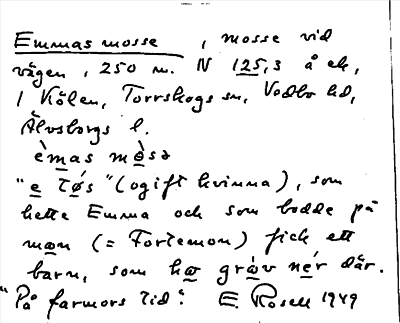 Emmas mosse, mosse vid
vägen, 250 m. N 125,3 å ek,
i Kölen, Torrskogs sn, Vedbo hd,
Älvsborgs l.
èmas mòsə
"e tø̀s" (ogift kvinna), som
hette Emma och som bodde på
mæn (= Fortemon) fick ett
barn, som hæ gräv nér där.
"På farmors tid". E. Rosell 1949